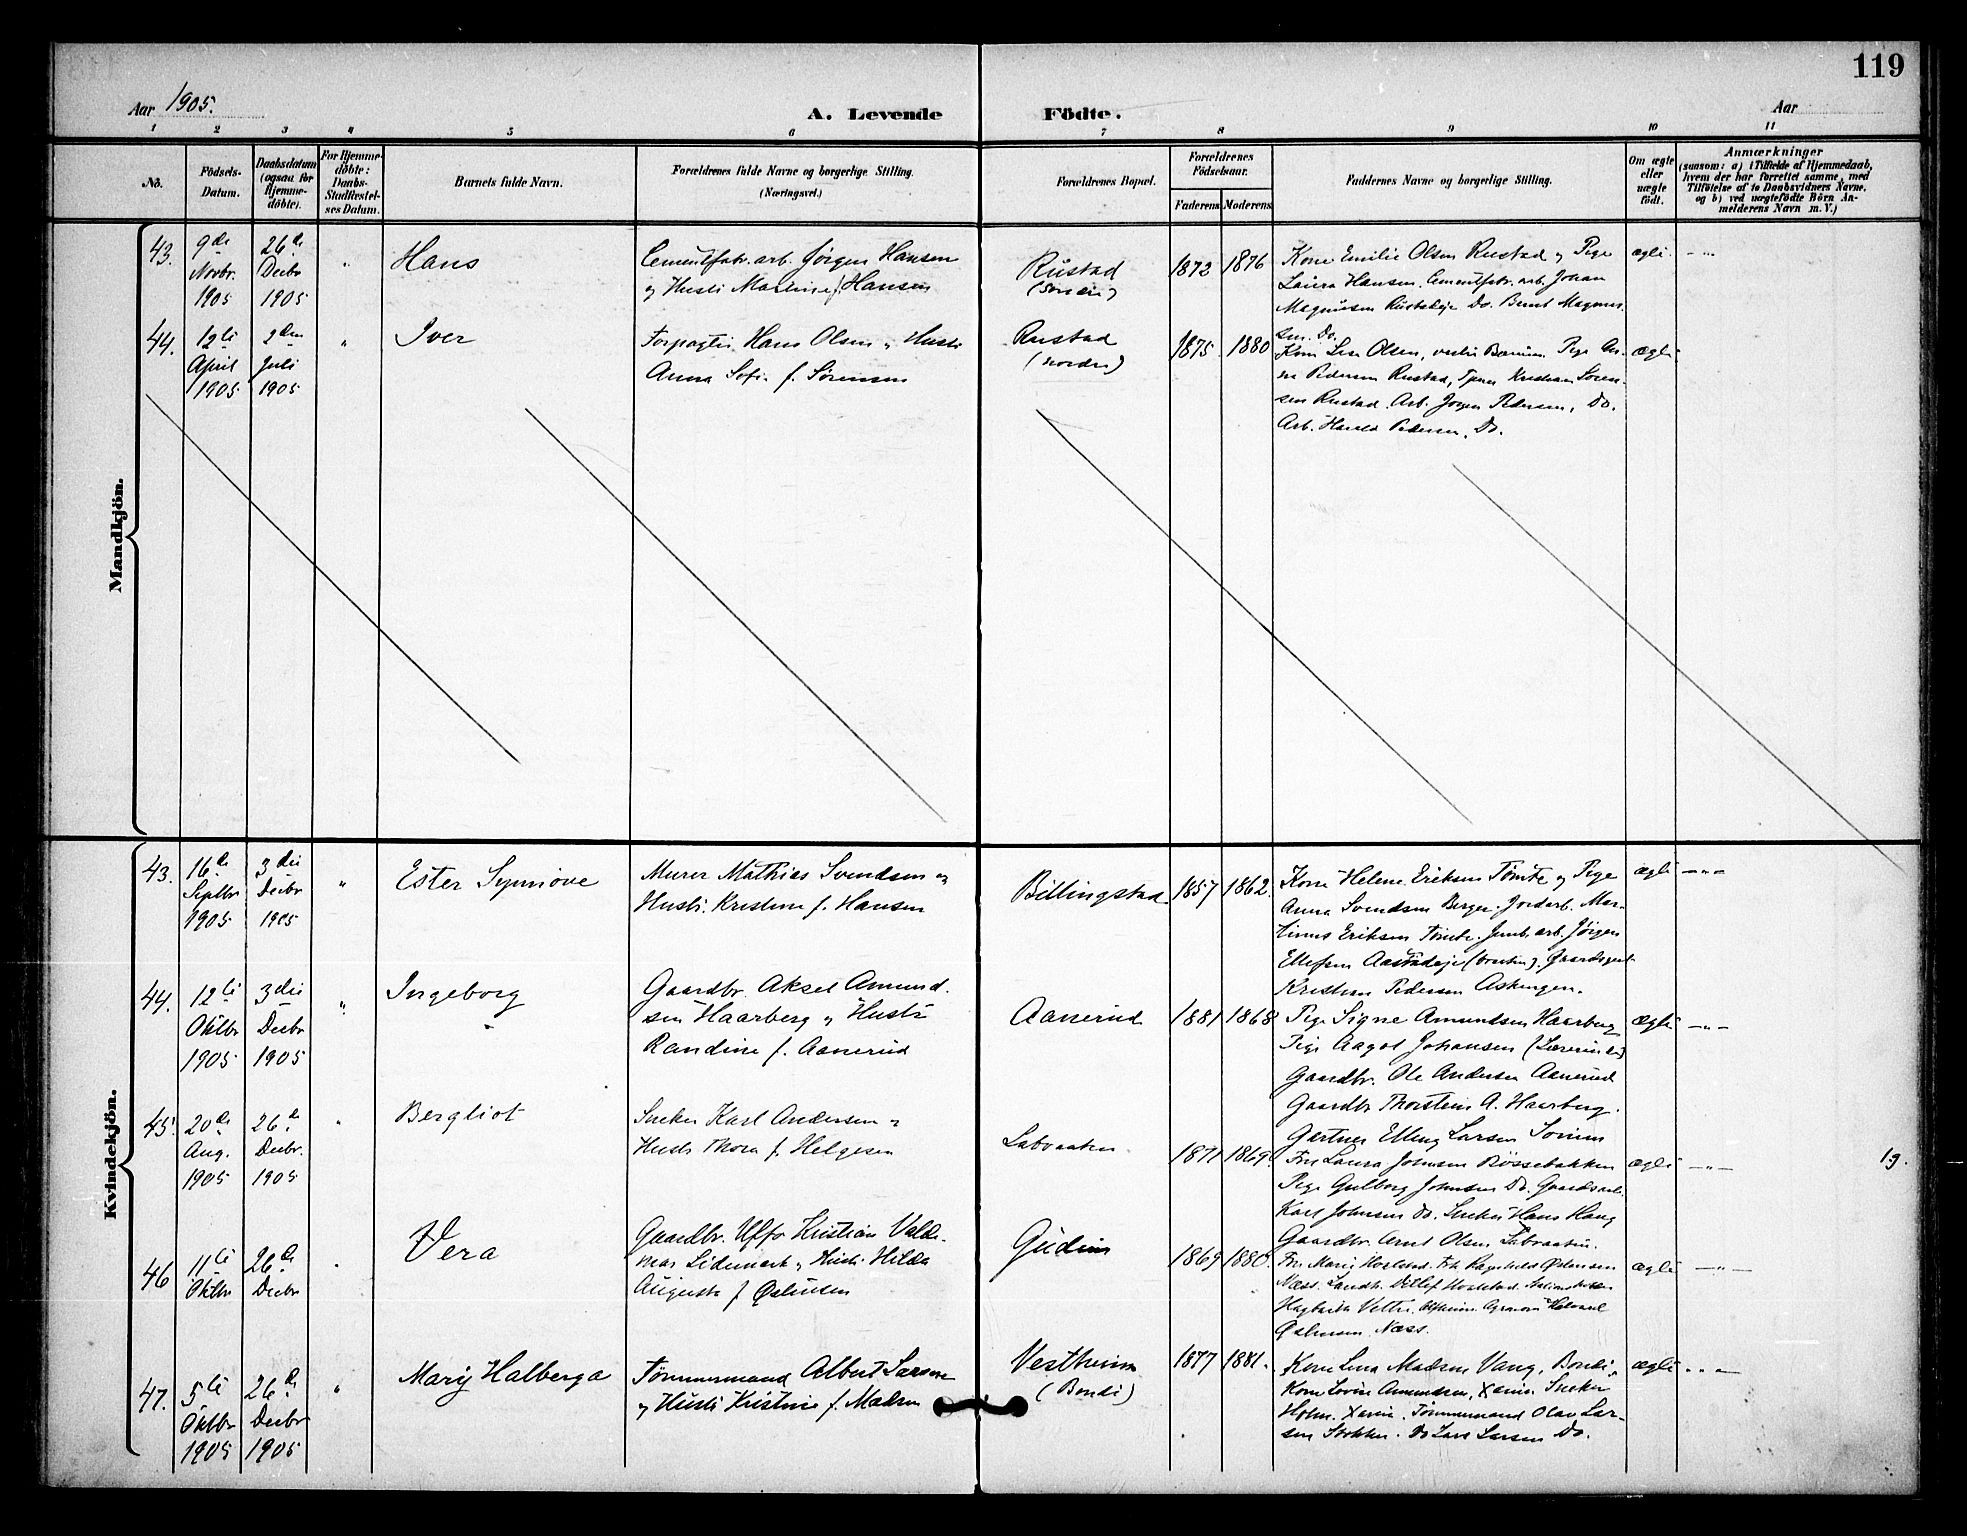 119
Aar 1905.
A. Levende Födte.
Aar
1 2 3 4 5 6 7 8 9 10 11
No.
Födsels-
Datum.
Daabsdatum
(ogsaa for
Hjemme-
döbte).
For Hjemme-
döbte:
Daabs-
Stadfæstel-
ses Datum.
Barnets fulde Navn.
Forældrenes fulde Navne og borgerlige Stilling.
(Næringsvei.)
Forældrenes Bopæl.
Forældrenes
Födselsaar.
Faderens Moderens
Faddernes Navne og borgerlige Stilling.
Om ægte
eller
uægte
födt.
Anmærkninger
(saasom: a) i Tilfælde af Hjemmedaab,
hvem der har forrettet samme, med
Tilföielse af to Daabsvidners Navne,
og b) ved uægtefödte Börn An-
melderens Navn m. V.)
Mandkjön.
43.
9de
Novbr.
1905
26de
Decbr
1905
Hans
Cementfabr.arb. Jörgen Hansen
og Hustr. Martine f. Hansen
Rustad
(söndre)
1872 1876
Kone Emilie Olsen Rustad og Pige
Laura Hansen, Cementfabr.arb. Johan
Magnusen Rustadeje Do. Bernt Magnus-
sen Do.
ægte
44.
12te
April
1905
2den
Juli
1905
Iver
Forpagter Hans Olsen og Hustr.
Anna Sofie f. Sörensen
Rustad
(nordre)
1875 1880
Kone Lise Olsen, vestre Bærum Pige An-
na Pedersen Rustad, Tjener Kristian Sören-
sen Rustad Arb. Jörgen Pedersen, Do.
Arb. Harald Pedersen, Do.
ægte
Kvindekjön.
43.
16de
Septbr
1905
3die
Decbr
1905
Ester Synnöve
Murer Mathias Svendsen og
Hustr. Kristine f. Hansen
Billingstad
1857 1862.
Kone Helene Eriksen Tömte og Pige
Anna Svendsen Berger. Jordarb. Mar-
tinus Eriksen Tömte. Jernb.arb. Jörgen
Ellefsen Aastadeje Gaardsgut
Kristian Pedersen Askengen.
ægte
44.
12te
Oktbr
1905
3die
Decbr
1905
Ingeborg
Gaardbr. Aksel Amund-
sen Haarberg og Hustr.
Randine f. Aanerud
Aanerud
1881 1868
Pige Signe Amundsen Haarberg
Pige Aagot Johansen (Lærerinde)
Gaardbr. Ole Andersen Aanerud
Gaardbr Thorstein A. Haarberg.
Gartner Elling Larsen
ægte
45.
20de
Aug.
1905
26de
Decbr.
1905
Bergliot
Snekker Karl Andersen og
Hustr. Thora f. Helgesen
Labraaten
1871 1869.
Fru Laura Johnsen Bössebakken
Pige Gulborg Johnsen Do. Gaardsarb.
Karl Johnsen Do. Snekker Hans Haug
Gaardbr. Arnt Olsen Labraaten.
ægte
19.
46
11te
Oktbr
26de
Decbr
Vera
Gaardbr. Uffo Kristian Valde-
mar Lidemark og Hustr. Hilda
Augusta f. Östensen
Gudim
1869 1880.
Fru Marie Frk Ragnhild Östensen
Næss. Landh. Detlef
Vettre. Agronom Halvard
Östensen Næss.
ægte
47.
5te
Oktbr
1905
26de
Decbr
1905
Mary Halberga
Tömmermand Albert Larsen
og Hustr. Kristine f. Madsen
Vestheim
(Bondi)
1877 1881.
Kone Lina Madsen Vang, Bondi,
Kone Lovise Amundsen, Xania. Snekker
Holm. Xania. Tömmermand Olav Lar-
sen Stokker. Do Lars Larsen Do.
ægte